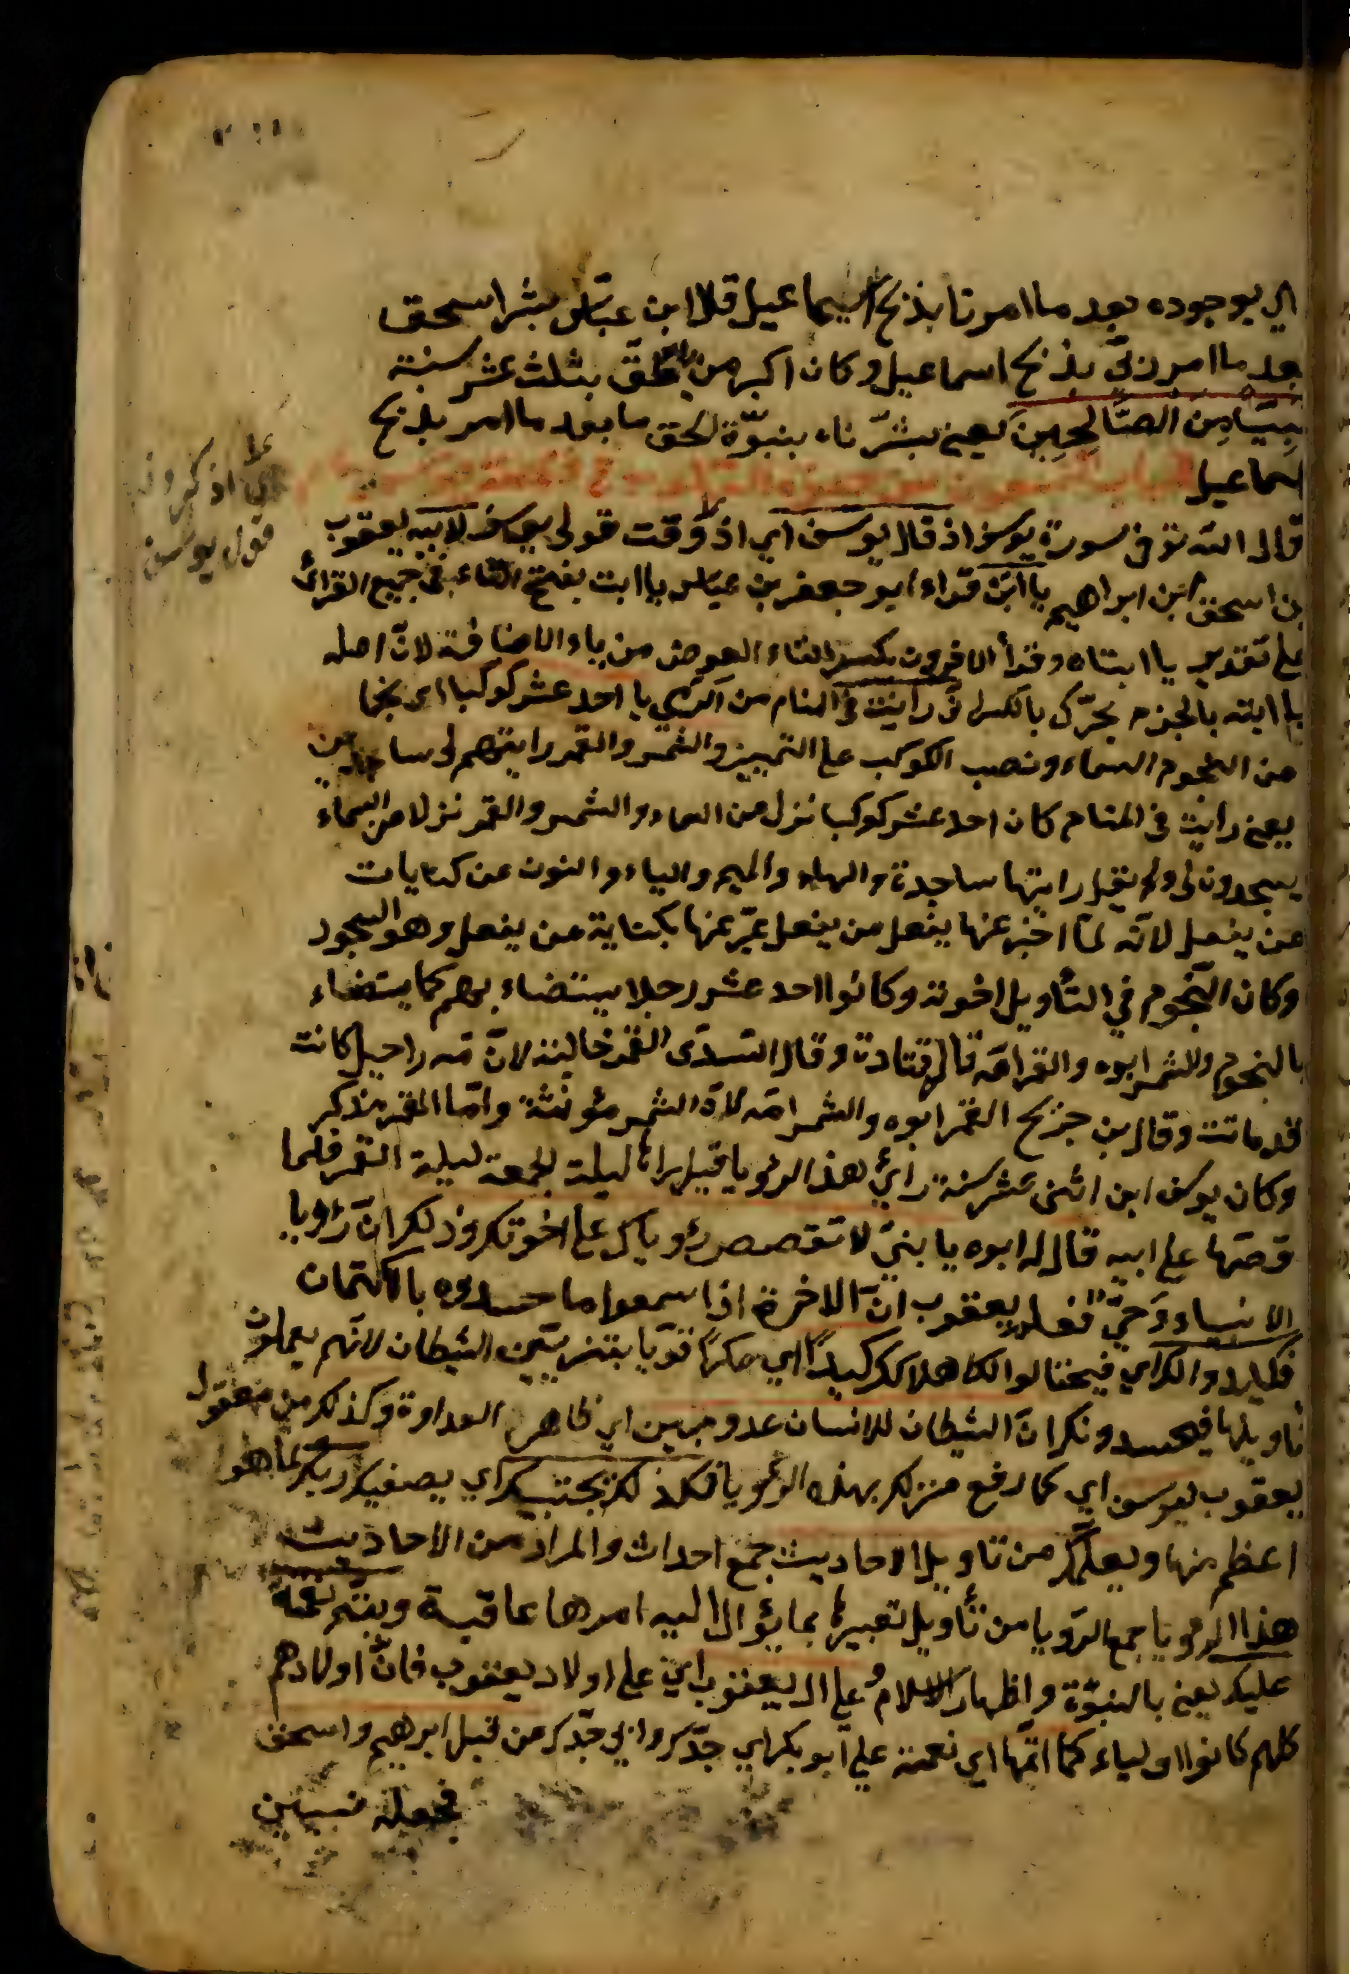 اي بوجوده بعد ما امرنا بذبح اسماعيل قال ابن عباس بشر اسحق
بعد ما امر زني بذبح اسماعيل وكان اكبر من اسحق بثلث عشر سنة
نبيّا من الصَّالحِينَ يعني بشّرناه بنبوّة اسحق ما بعد ما امر بذبح
اسماعيل
قال الله تع في سورة يوسف اذ قال يوسف اي اذ وقت قول يوسف لابيه يعقوب
بن اسحق ابن ابراهيم يا ابت قراء ابو جعفر بن عباس يا ابت بفتح التاء في جميع القرائ
على تقدير يا ابتاه وقرأ الاخرون بكسر التاء العوض من ياء الاضافة لانّ اصله
يا ابته بالجزم يحرّك بالكسر انّى رايت في المنام من الرى يا احد عشر كوكبا اى نجما
من النجوم السماء ونصب الكوكب على التمييز والشمس والقمر رايتهم لى ساجدين
يعني رايت في المنام كان احد عشر كوكبا نزل من السماء والشمس والقمر نزلا من السماء
يسجدون لى ولم يقل رايتها ساجدة والهاء والميم والياء والنون عن كنايات
من يفعل لانّه لمّا اخبر عنها بفعل من يفعل عبّر عنها بكناية من يفعل وهو السجود
وكان النّجوم في التأويل اخوته وكانوا احد عشر رجلا يستضاء بهم كما يستضاء
بالنجوم والشمس ابوه والقمر امّه قال قتادة وقال السّدّى القمر خالته لانّ امّه راحيل كانت
قد ماتت وقال بن جريح القمر ابوه والشمس امّه لانّ الشمس مؤنّثة وامّا القمر مذكر
وكان يوسف ابن اثنى عشر سنة رأى هذا الرؤيا قيل راها ليلة الجمعة ليلة القمر فلما
قصّها على ابيه قال له ابوه يا بنيّ لا تقصص رؤياك على اخوتك وذلك انّ رؤيا
الانبياء وحيّ فعلم يعقوب انّ الاخرة اذا سمعوا ما حسدوه بالاكتمان
فيكيدوا لك اي فيحتالوا لك اهلاكك كيداً اي مكراً قويّا بتزيين الشيطان لانّهم يعملون
تاويلها فيحسدونك انّ الشيطان للانسان عدو مبين اي ظاهر العداوة وكذلك من مقول
يعقوب ليوسف اي كما رفع منزلك بهذه الرؤيا فكذلك يجتبيك اي يصفيك ربك لما هو
اعظم منها ويعلّمك من تاويل الاحاديث جمع احداث والمراد من الاحاديث
هذا الرؤيا جمع الرّويا من تأويل تعبيرها بما يؤل اليه امرها عاقبة ويتم نعمته
عليك يعني بالنبوّة واظهار الاسلام وعلى ال يعقوب اي على اولاد يعقوب فانّ اولادهم
كلهم كانوا اولياء كما اتمّها اي نعمته على ابويك اي جدّك وابي جدّك من قبل ابرهيم واسحق
فجعله نبيين
اي اذكر وقت
قول يوسف